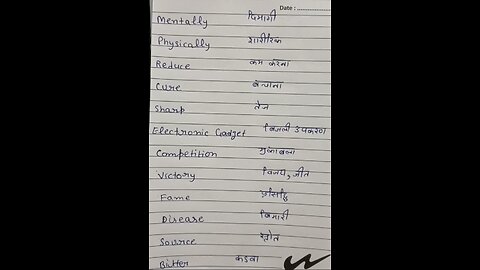 Date :
Mentally दिमागी
Physically शारीरिक
Reduce कम करना
Cure बचाना
Sharp तेज
Electronic Gadget बिजली उपकरण
Competition मुकाबला
Victory विजय, जीत
Fame प्रसिद्धि
Disease बिमारी
Source स्त्रोत
Bitter कडवा